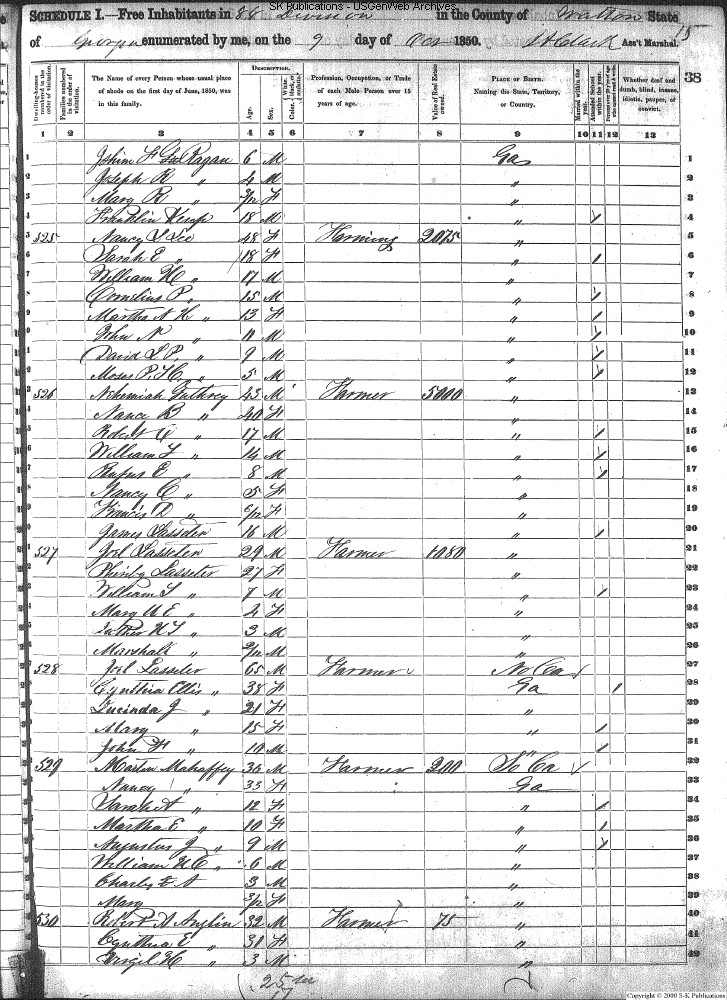 SK Publications - USGenWeb Archives
SCHEDULE I.—Free Inhabitants in 88 Division in the County of Walton State
of Georgia enumerated by me, on the 9 day of Oct 1850. Ass't Marshal.
38
Dwelling-houses numbered in the order of visitation.
Families numbered in the order of visitation.
The Name of every Person whose usual place of abode on the first day of June, 1850, was in this family.
DESCRIPTION.
Age.
Sex.
Color, White, black, or mulatto.
Profession, Occupation, or Trade of each Male Person over 15 years of age.
Value of Real Estate owned.
PLACE OF BIRTH. Naming the State, Territory, or Country.
Married within the year.
Attended School within the year.
Whether deaf and dumb, blind, insane, idiotic, pauper, or convict.
1 2 3 4 5 6 7 8 9 10 11 12 13
1 Ragan 6 M Ga 1
2 Joseph R " 4 M " 2
3 Mary R " F " 3
4 Franklin Kemp 18 M " 4
5 525 Nancy L Lee 48 F Farming 2075 " 5
6 Sarah E " 18 F " 6
7 William H " 17 M " 7
8 Cornelius P " 15 M " 8
9 Martha A H " 13 F " 9
10 John N " 11 M " 10
11 David L P " 9 M " 11
12 Moses P. H C " 5 M " 12
13 526 Nehemiah Guthrey 43 M Farmer 5000 " 13
14 Nancy B " 40 F " 14
15 Robert C " 17 M " 15
16 William L " 14 M " 16
17 Rufus E " 8 M " 17
18 Nancy C " 5 F " 18
19 Francis D " F " 19
20 James Lasseter 16 M " 20
21 527 Joel Lasseter 29 M Farmer 1080 " 21
22 Lasseter 27 F " 22
23 William S " 7 M " 23
24 Mary E " F " 24
25 Luther " 3 M " 25
26 Marshall " M " 26
27 528 Joel Lasseter 65 M Farmer No Ca 27
28 Cynthia Ellis " 38 F Ga 28
29 Lucinda J " 21 F " 29
30 Mary " 15 F " 30
31 John H " 10 M " 31
32 529 Martin Mahaffey 36 M Farmer 200 So Ca 32
33 Nancy " 33 F Ga 33
34 Sarah A " 12 F " 34
35 Martha E " 10 F " 35
36 Augustus J " 9 M " 36
37 William H C " 6 M " 37
38 Charly A 3 M " 38
39 Mary F " 39
40 530 Robert A Anglin 32 M Farmer 75 " 40
41 Cynthia E " 31 F " 41
42 Virgil H " 3 M " 42
Copyright © 2000 S-K Publications